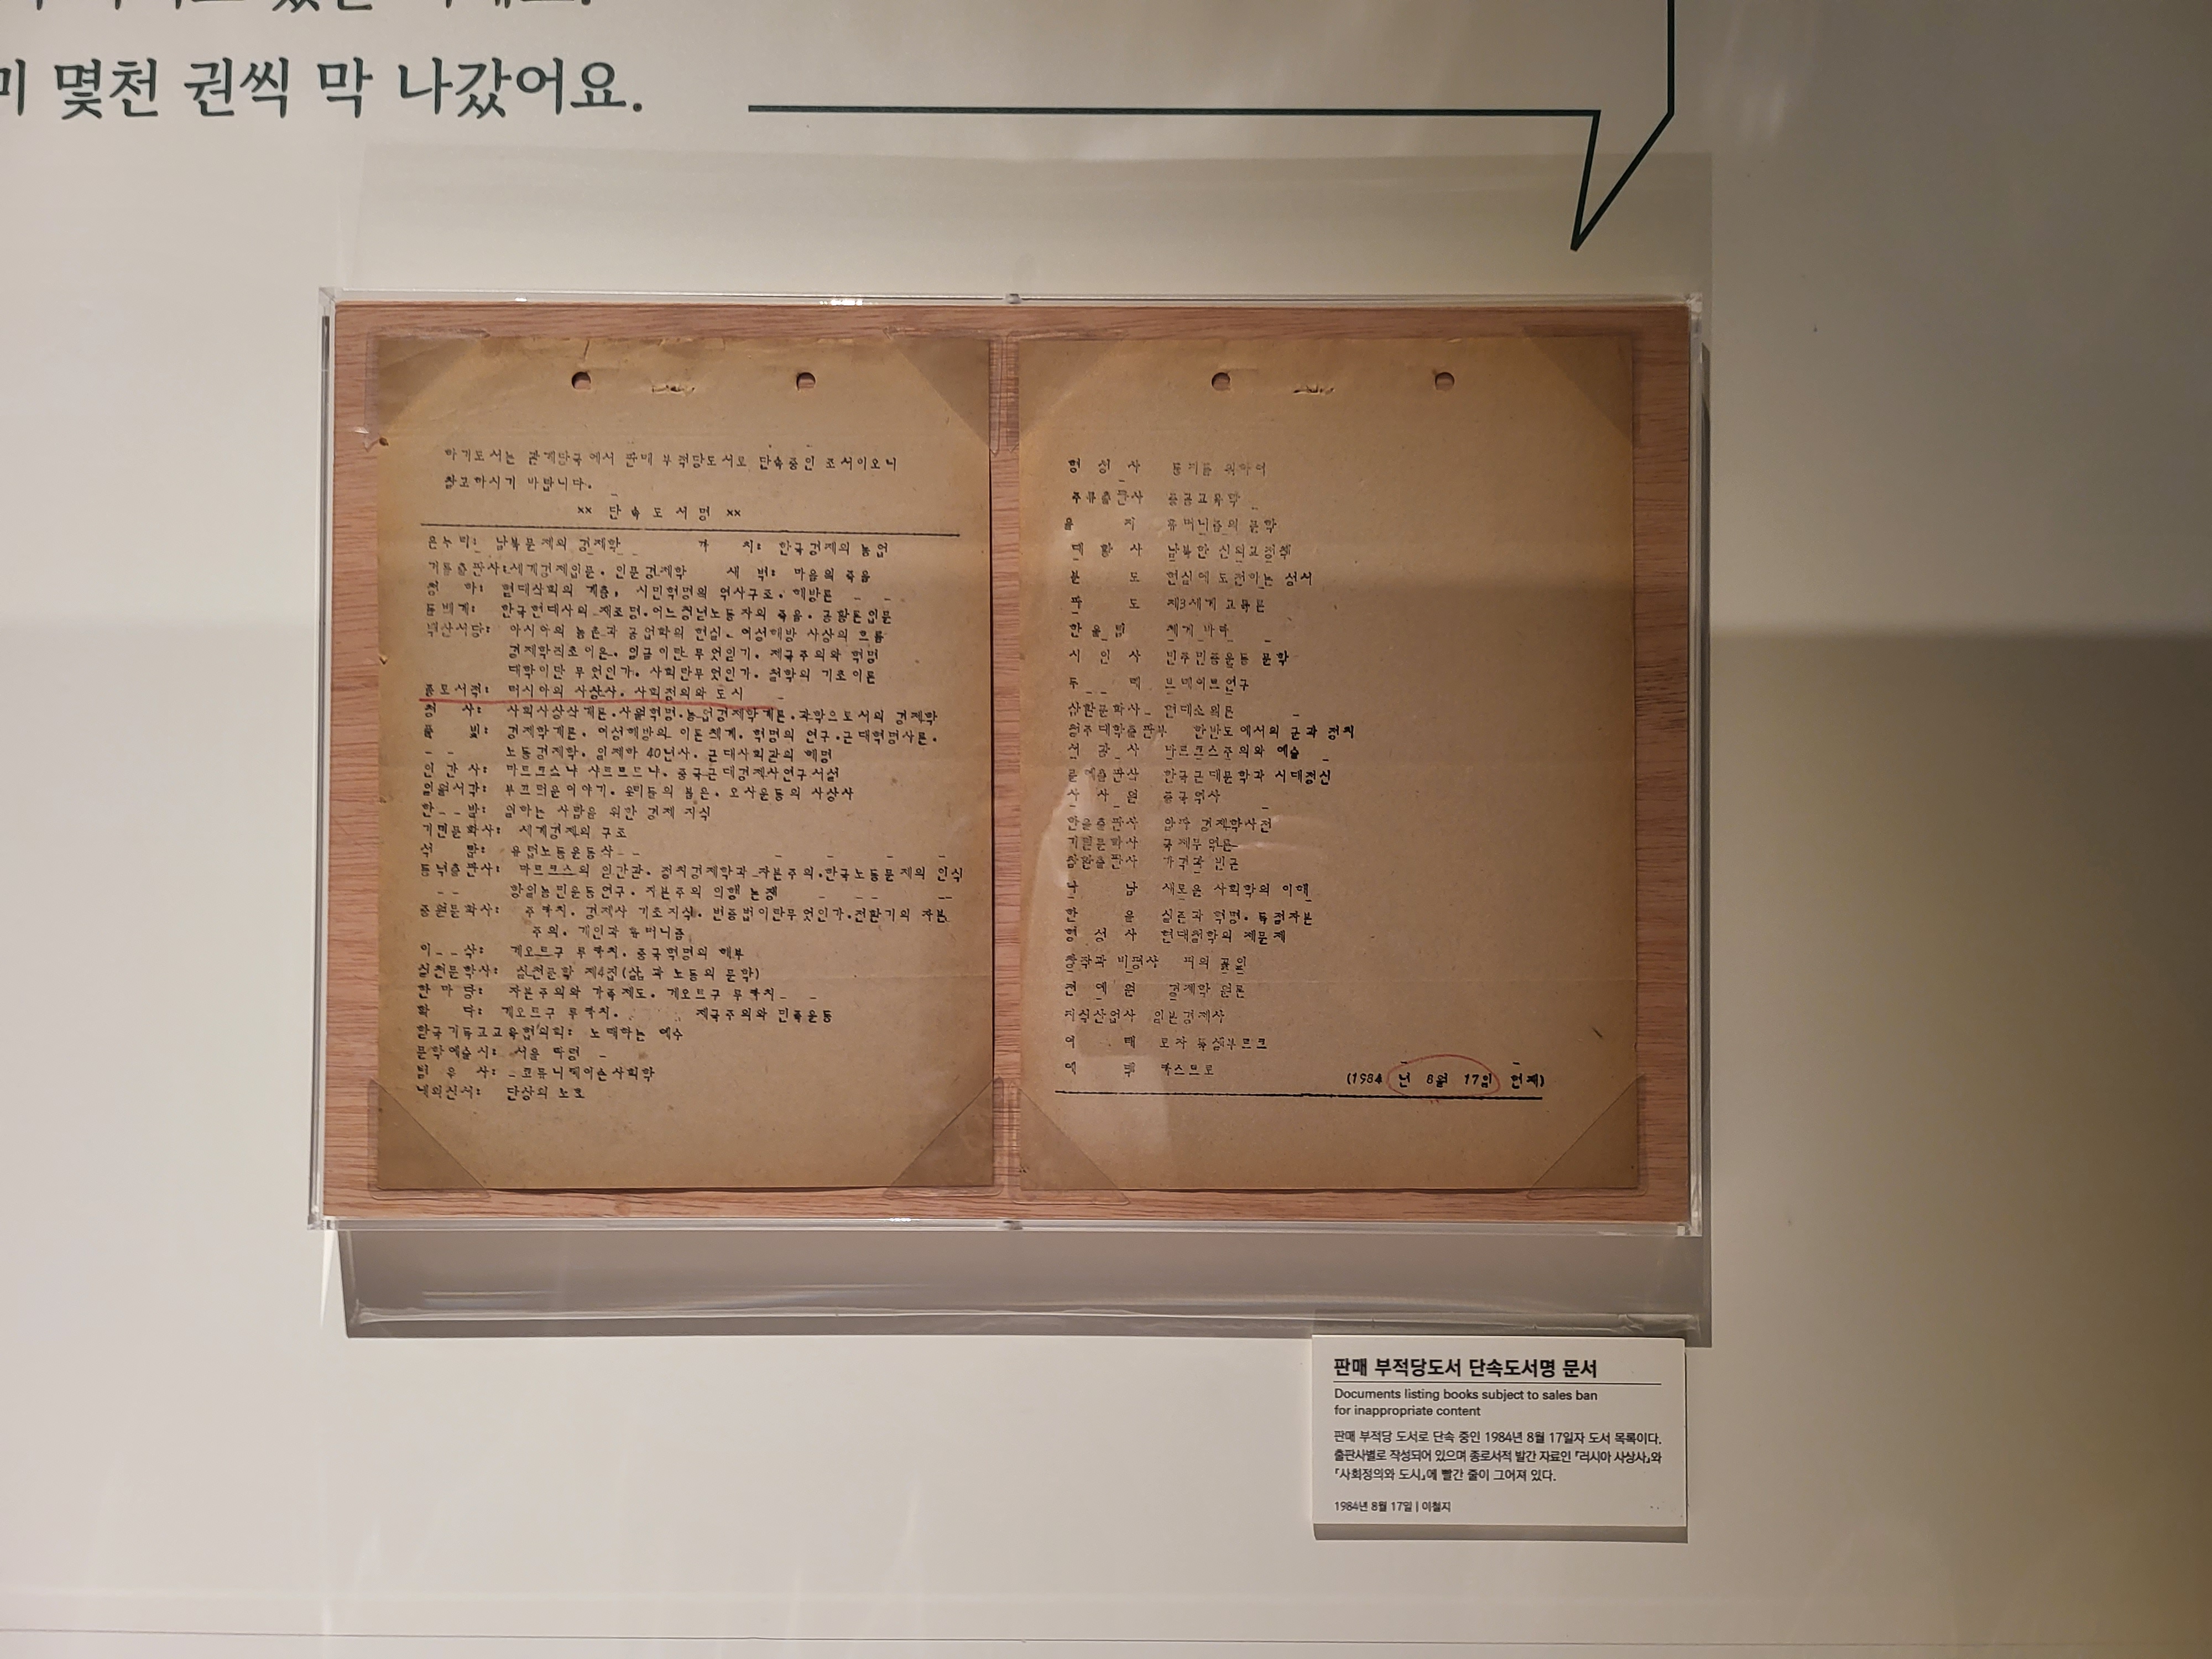 몇천 권씩 막 나갔어요.
하기도서는 관계당국에서 판매 부적당도서로 단속중인 조서이오니
참고하시기 바랍니다.
xx 단속도서명 xx
온누리: 남북문제의 경제학 가 치: 한국경제의 농업
거름출판사: 세계경제입문. 인문경제학 세 벽: 마음의 죽음
청 하: 현대사회의 계층, 시민혁명의 역사구조. 해방론
돌베개: 한국현대사의 재조명. 어느청년노동자의 죽음. 공황론입문
백산서당: 아시아의 농촌과 공업화의 현실. 여성해방 사상의 흐름
경제학기초이론. 임금이란 무엇인가. 제국주의와 혁명
대학이란 무엇인가. 사회란무엇인가. 철학의 기초이론
종로서적: 러시아의 사상사. 사회정의와 도시
청 사: 사회사상사개론. 사월혁명. 농업경제학개론. 과학으로서의 경제학
풀 빛: 경제학개론. 여성해방의 이론체계. 혁명의 연구. 근대혁명사론.
노동경제학. 일제하 40년사. 근대사회관의 해명
인간사: 마르크스냐 사르트르냐. 중국근대경제사연구서설
일월서각: 부르며운이야기. 분노의 북은. 오사운동의 사상사
한 밭: 일하는 사람을 위한 경제 지식
기린문화사: 세계경제의 구조
석 탑: 유럽노동운동사
동녘출판사: 마르크스의 인간관. 정치경제학과 자본주의. 한국노동문제의 인식
항일농민운동연구. 자본주의 이행 논쟁
중원문화사: 루카치. 경제사 기초지식. 변증법이란무엇인가. 전환기의 자본
주의. 개인과 휴머니즘
이 삭: 게오르그 루카치. 중국혁명의 해부
실천문학사: 실천문학 제4집(삶과 노동의 문학)
한마당: 자본주의와 가족제도. 게오르그 루카치
화 다: 게오르그 루카치. 제국주의와 민족운동
한국기독교교육협의회: 노래하는 예수
문학예술사: 서울 타령
범 우 사: 코뮤니케이숀사회학
내외신서: 단상의 노호
형 성 사 불기를 위하여
주류출판사 중공교육학
을 지 휴머니즘의 문학
대 량 사 남북한 신외교정책
분 도 현실에 도전하는 성서
파 도 제3세계 교육론
한울림 세계 나라
시 인 사 민주민중운동 문학
두 레 브레히트연구
삼한문화사 현대소외론
원주대학출판부 한반도에서의 군과 정치
석 광 사 마르크스주의와 예술
문예출판사 한국근대문학과 시대정신
사 사 연 중국역사
한울출판사 알파 경제학사전
기린문화사 국제무역론
참한출판사 가격과 빈곤
나 남 새로운 사회학의 이해
한 울 실존과 혁명. 독점자본
형 성 사 현대철학의 제문제
창작과 비평사 피의 꽃잎
전 예 원 경제학 원론
지식산업사 일본경제사
이 레 모자 쓴 심부르크
예 맥 카스트로
(1984 년 8월 17일 현재)
판매 부적당도서 단속도서명 문서
Documents listing books subject to sales ban
for inappropriate content
판매 부적당 도서로 단속 중인 1984년 8월 17일자 도서 목록이다.
출판사별로 작성되어 있으며 종로서적 발간 자료인 『러시아 사상사』와
『사회정의와 도시』에 빨간 줄이 그어져 있다.
1984년 8월 17일 | 이철지